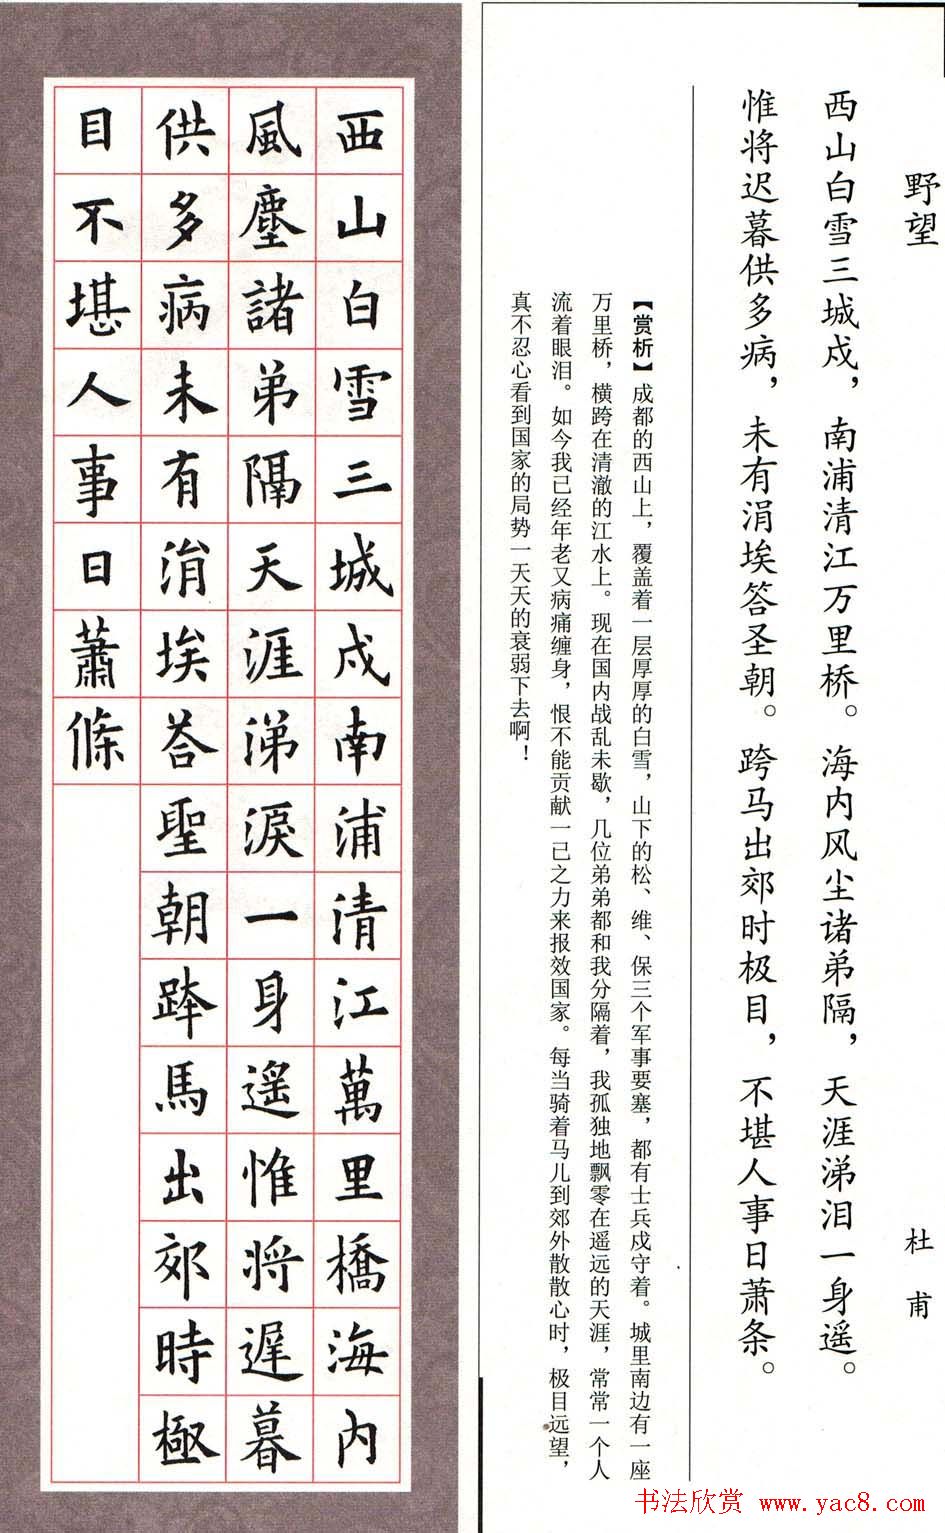 野望
杜甫
西山白雪三城戍，南浦清江万里桥。海内风尘诸弟隔，天涯涕泪一身遥。
惟将迟暮供多病，未有涓埃答圣朝。跨马出郊时极目，不堪人事日萧条。
【赏析】成都的西山上，覆盖着一层厚厚的白雪，山下的松、维、保三个军事要塞，都有士兵戍守着。城里南边有一座
万里桥，横跨在清澈的江水上。现在国内战乱未歇，几位弟弟都和我分隔着，我孤独地飘零在遥远的天涯，常常一个人
流着眼泪。如今我已经年老又病痛缠身，恨不能贡献一己之力来报效国家。每当骑着马儿到郊外散散心时，极目远望，
真不忍心看到国家的局势一天天的衰弱下去啊！
西山白雪三城戍南浦清江萬里橋海内
風塵諸弟隔天涯涕淚一身遙惟將遲暮
供多病未有涓埃答聖朝跨馬出郊時極
目不堪人事日蕭條
书法欣赏 www.yac8.com